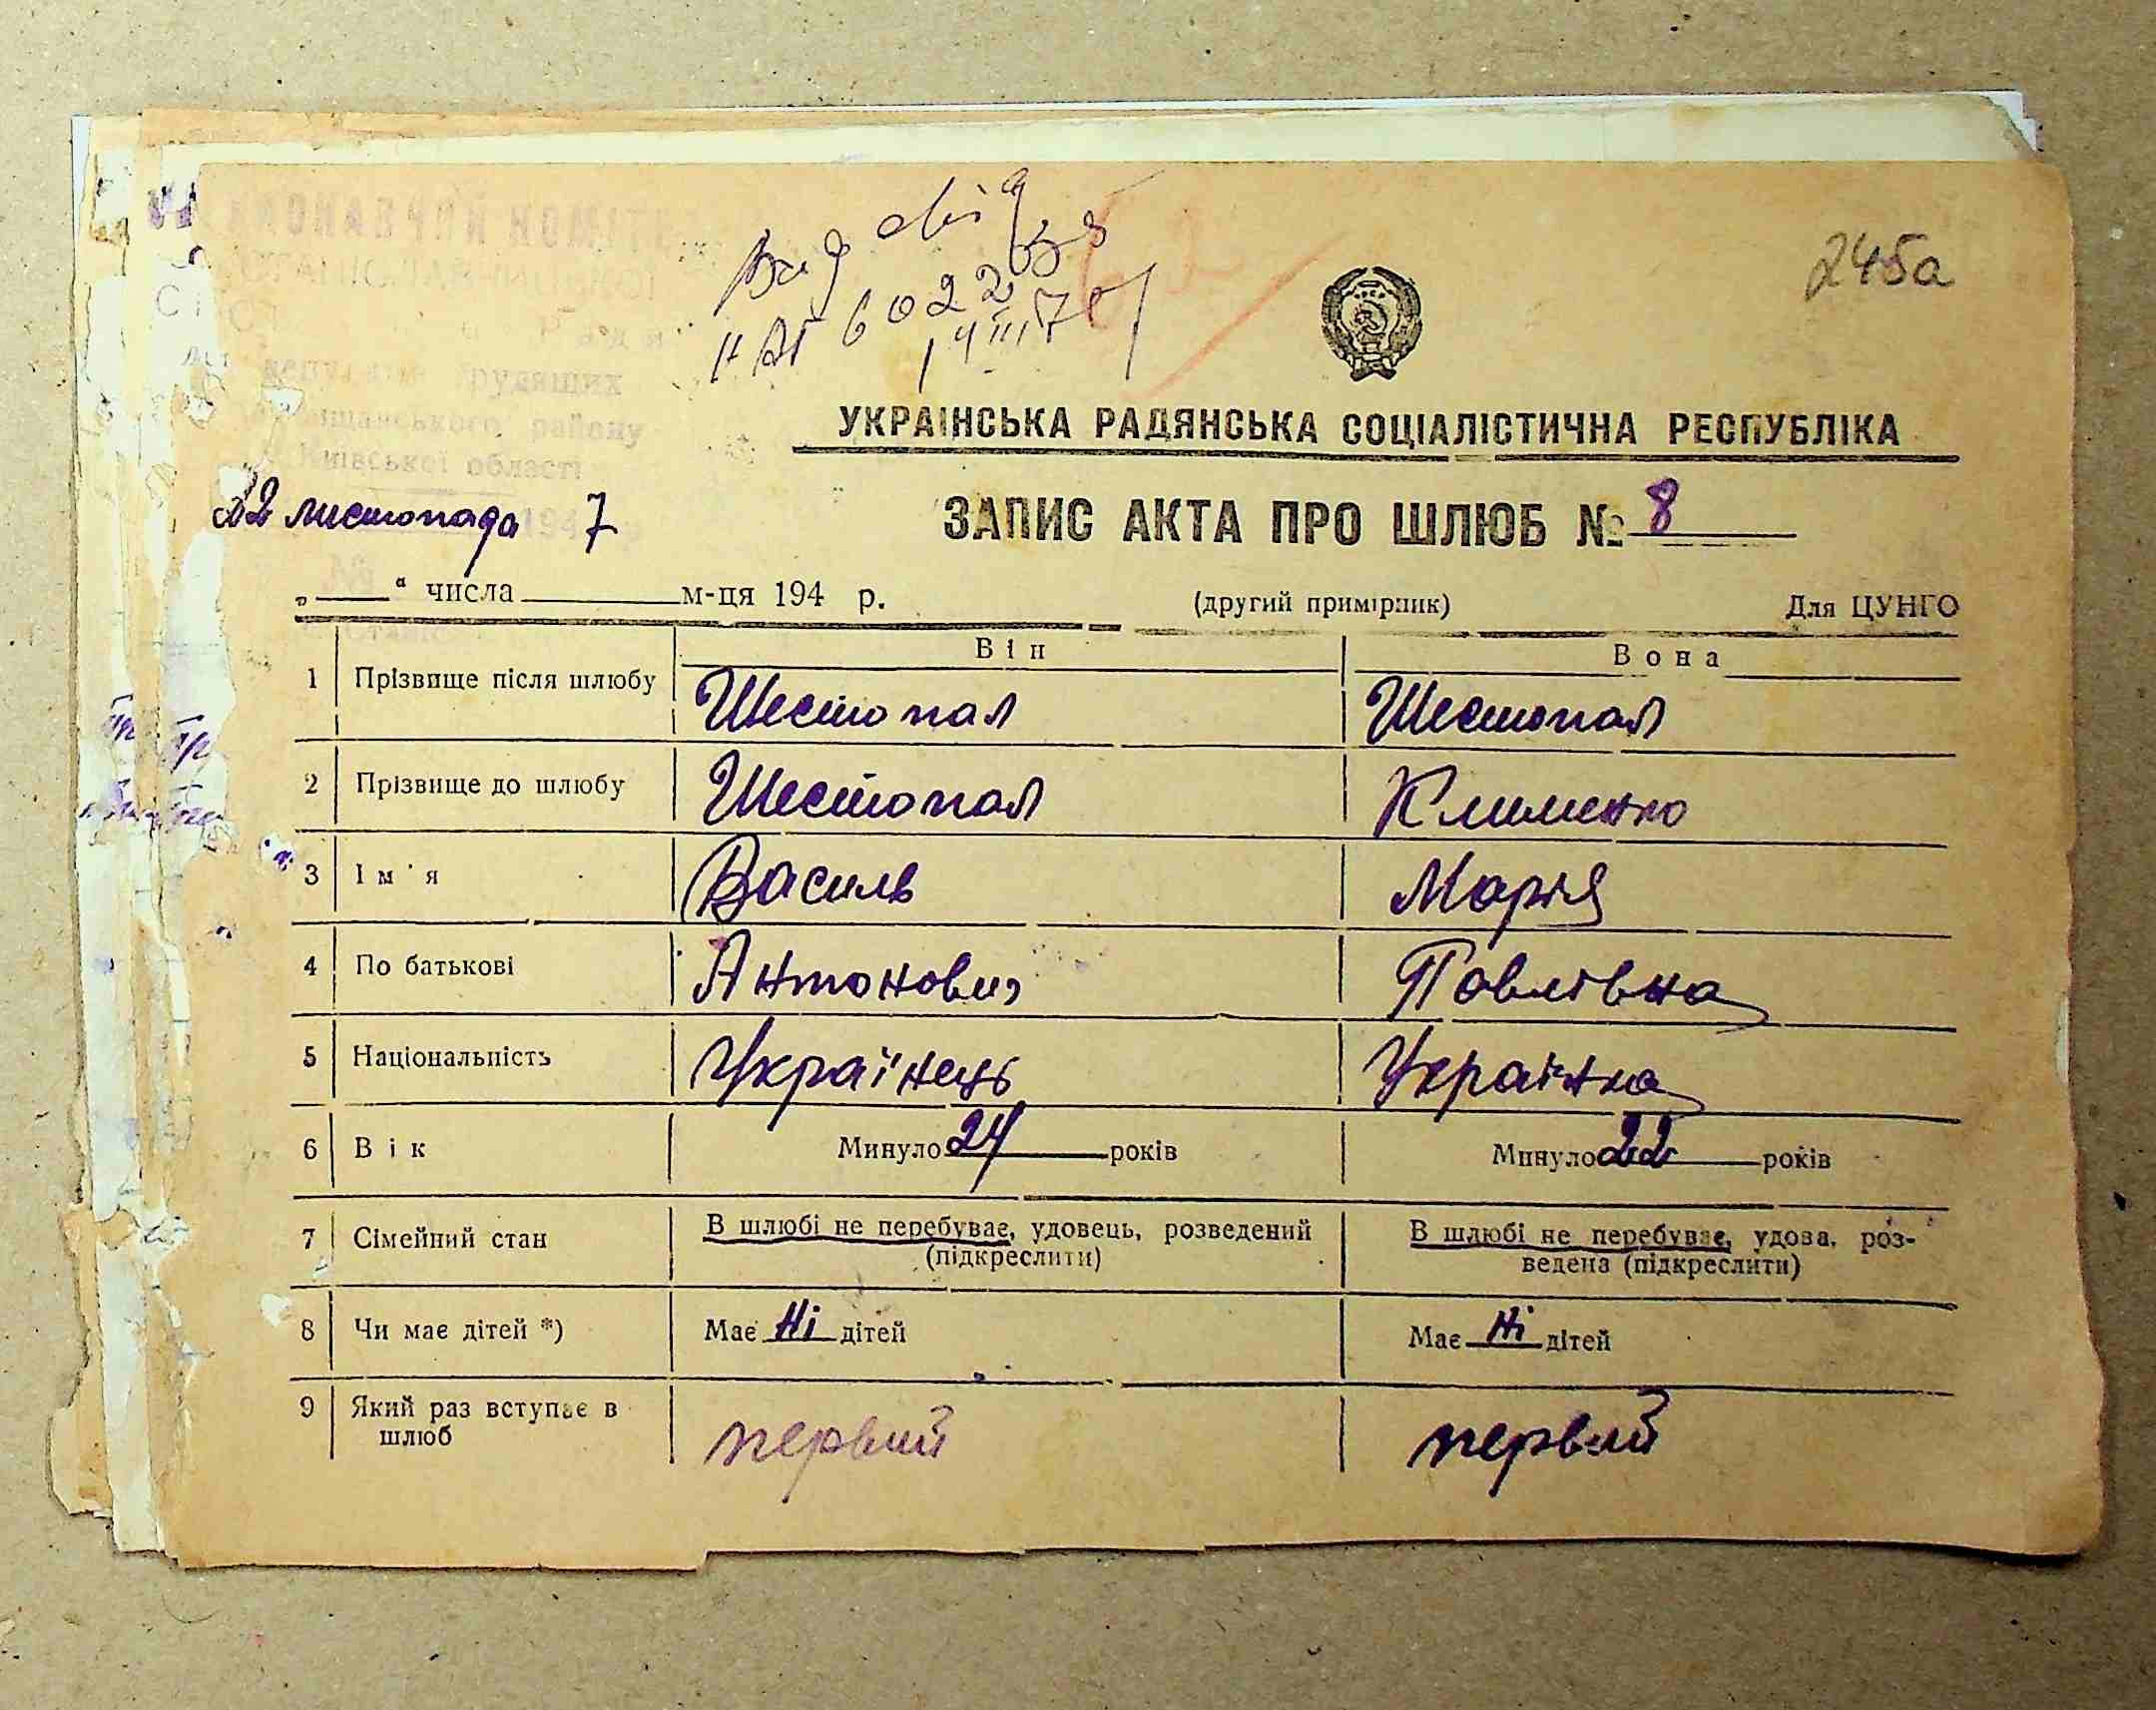 245а
Вид свід
II АГ 602258
14 III 70
ВИКОНАВЧИЙ КОМІТЕТ
СТАНІСЛАВЧИЦЬКОЇ
Ради
депутатів трудящих
району
Київської області
УКРАЇНСЬКА РАДЯНСЬКА СОЦІАЛІСТИЧНА РЕСПУБЛІКА
22 листопада 194 7
ЗАПИС АКТА ПРО ШЛЮБ № 8
„ “ числа м-ця 194 р. (другий примірник) Для ЦУНГО
Він Вона
1 Прізвище після шлюбу Шестопал Шестопал
2 Прізвище до шлюбу Шестопал Клименко
3 Ім'я Василь Марія
4 По батькові Антонович Павлівна
5 Національність Українець Українка
6 Вік Минуло 24 років Минуло 22 років
7 Сімейний стан В шлюбі не перебуває, удовець, розведений (підкреслити) В шлюбі не перебуває, удова, роз-
ведена (підкреслити)
8 Чи має дітей *) Має Ні дітей Має Ні дітей
9 Який раз вступає в шлюб первий первий